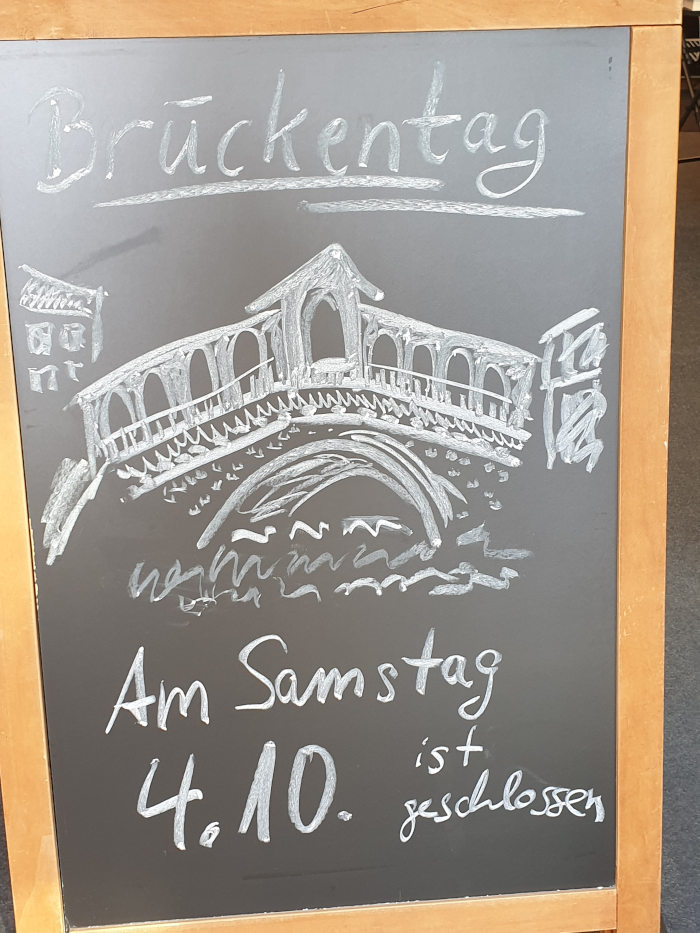 Brückentag
Am Samstag
4.10. ist
geschlossen